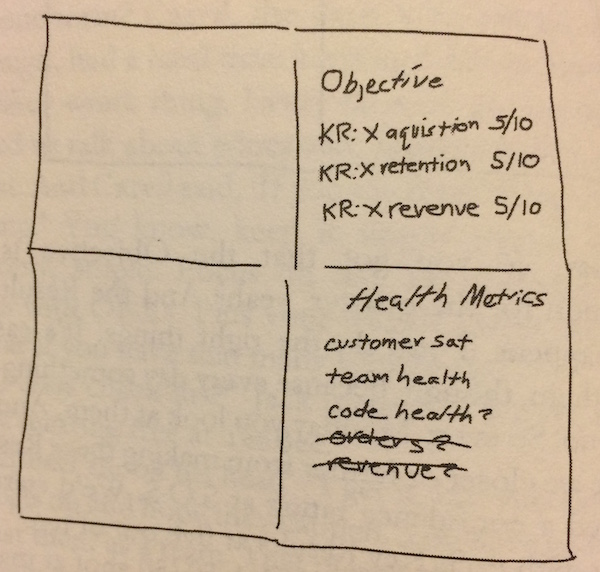 Objective
KR: X aquistion 5/10
KR: X retention 5/10
KR: X revenue 5/10
Health Metrics
customer sat
team health
code health?
orders?
revenue?